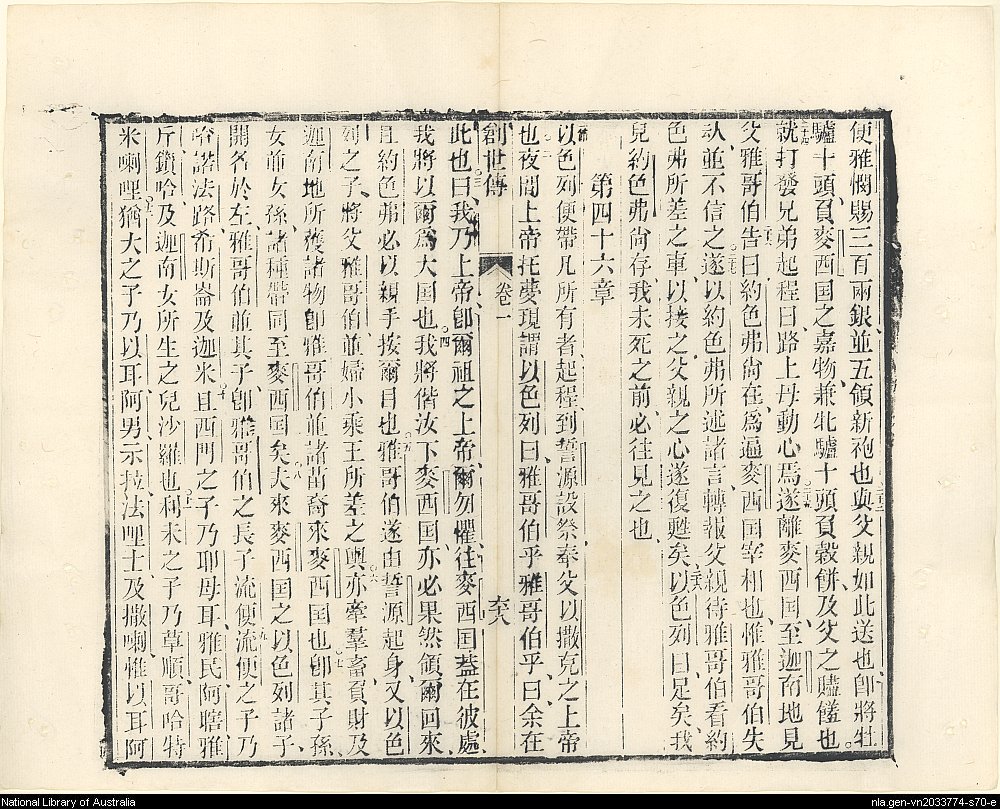 便雅憫賜三百兩銀並五領新袍也與父親如此送也卽將牡
驢十頭負麥西国之嘉物兼牝驢十頭負穀餅及父之贐饈也
就打發兄弟起程曰路上毋動心焉遂離麥西囯至迦南地見
父雅哥伯告曰約色弗尙在爲遍麥西国宰相也惟雅哥伯失
㳄並不信之遂以約色弗所述諸言轉報父親待雅哥伯看約
色弗所差之車以接之父親之心遂復甦矣以色列曰足矣我
兒約色弗尙存我未死之前必往見之也
第四十六章
以色列便帶凡所有者起程到誓源設祭奉父以撒克之上帝
也夜間上帝托夢現謂以色列曰雅哥伯乎雅哥伯乎曰余在
創世傳 卷一 六八
此也曰我乃上帝卽爾祖之上帝爾勿懼往麥西囯葢在彼處
我將以爾爲大囯也我將偕汝下麥西国亦必果然領爾回來
且約色弗必以親手按爾目也雅哥伯遂由誓源起身又以色
列之子將父雅哥伯並婦小乘王所差之輿亦牽羣畜負財及
迦南地所獲諸物卽雅哥伯並諸苗裔來麥西囯也卽其子孫
女並女孫諸種帶同至麥西囯矣夫來麥西囯之以色列諸子
開名於左雅哥伯並其子卽雅哥伯之長子流便流便之子乃
哈諾法路希斯崙及迦米且西門之子乃耶母耳雅民阿瞎雅
斤鎖哈及迦南女所生之兒沙羅也利未之子乃草順哥哈特
米喇哩猶大之子乃以耳阿男示拉法哩士及撒喇惟以耳阿
National Library of Australia
nla.gen-vn2033774-s70-e